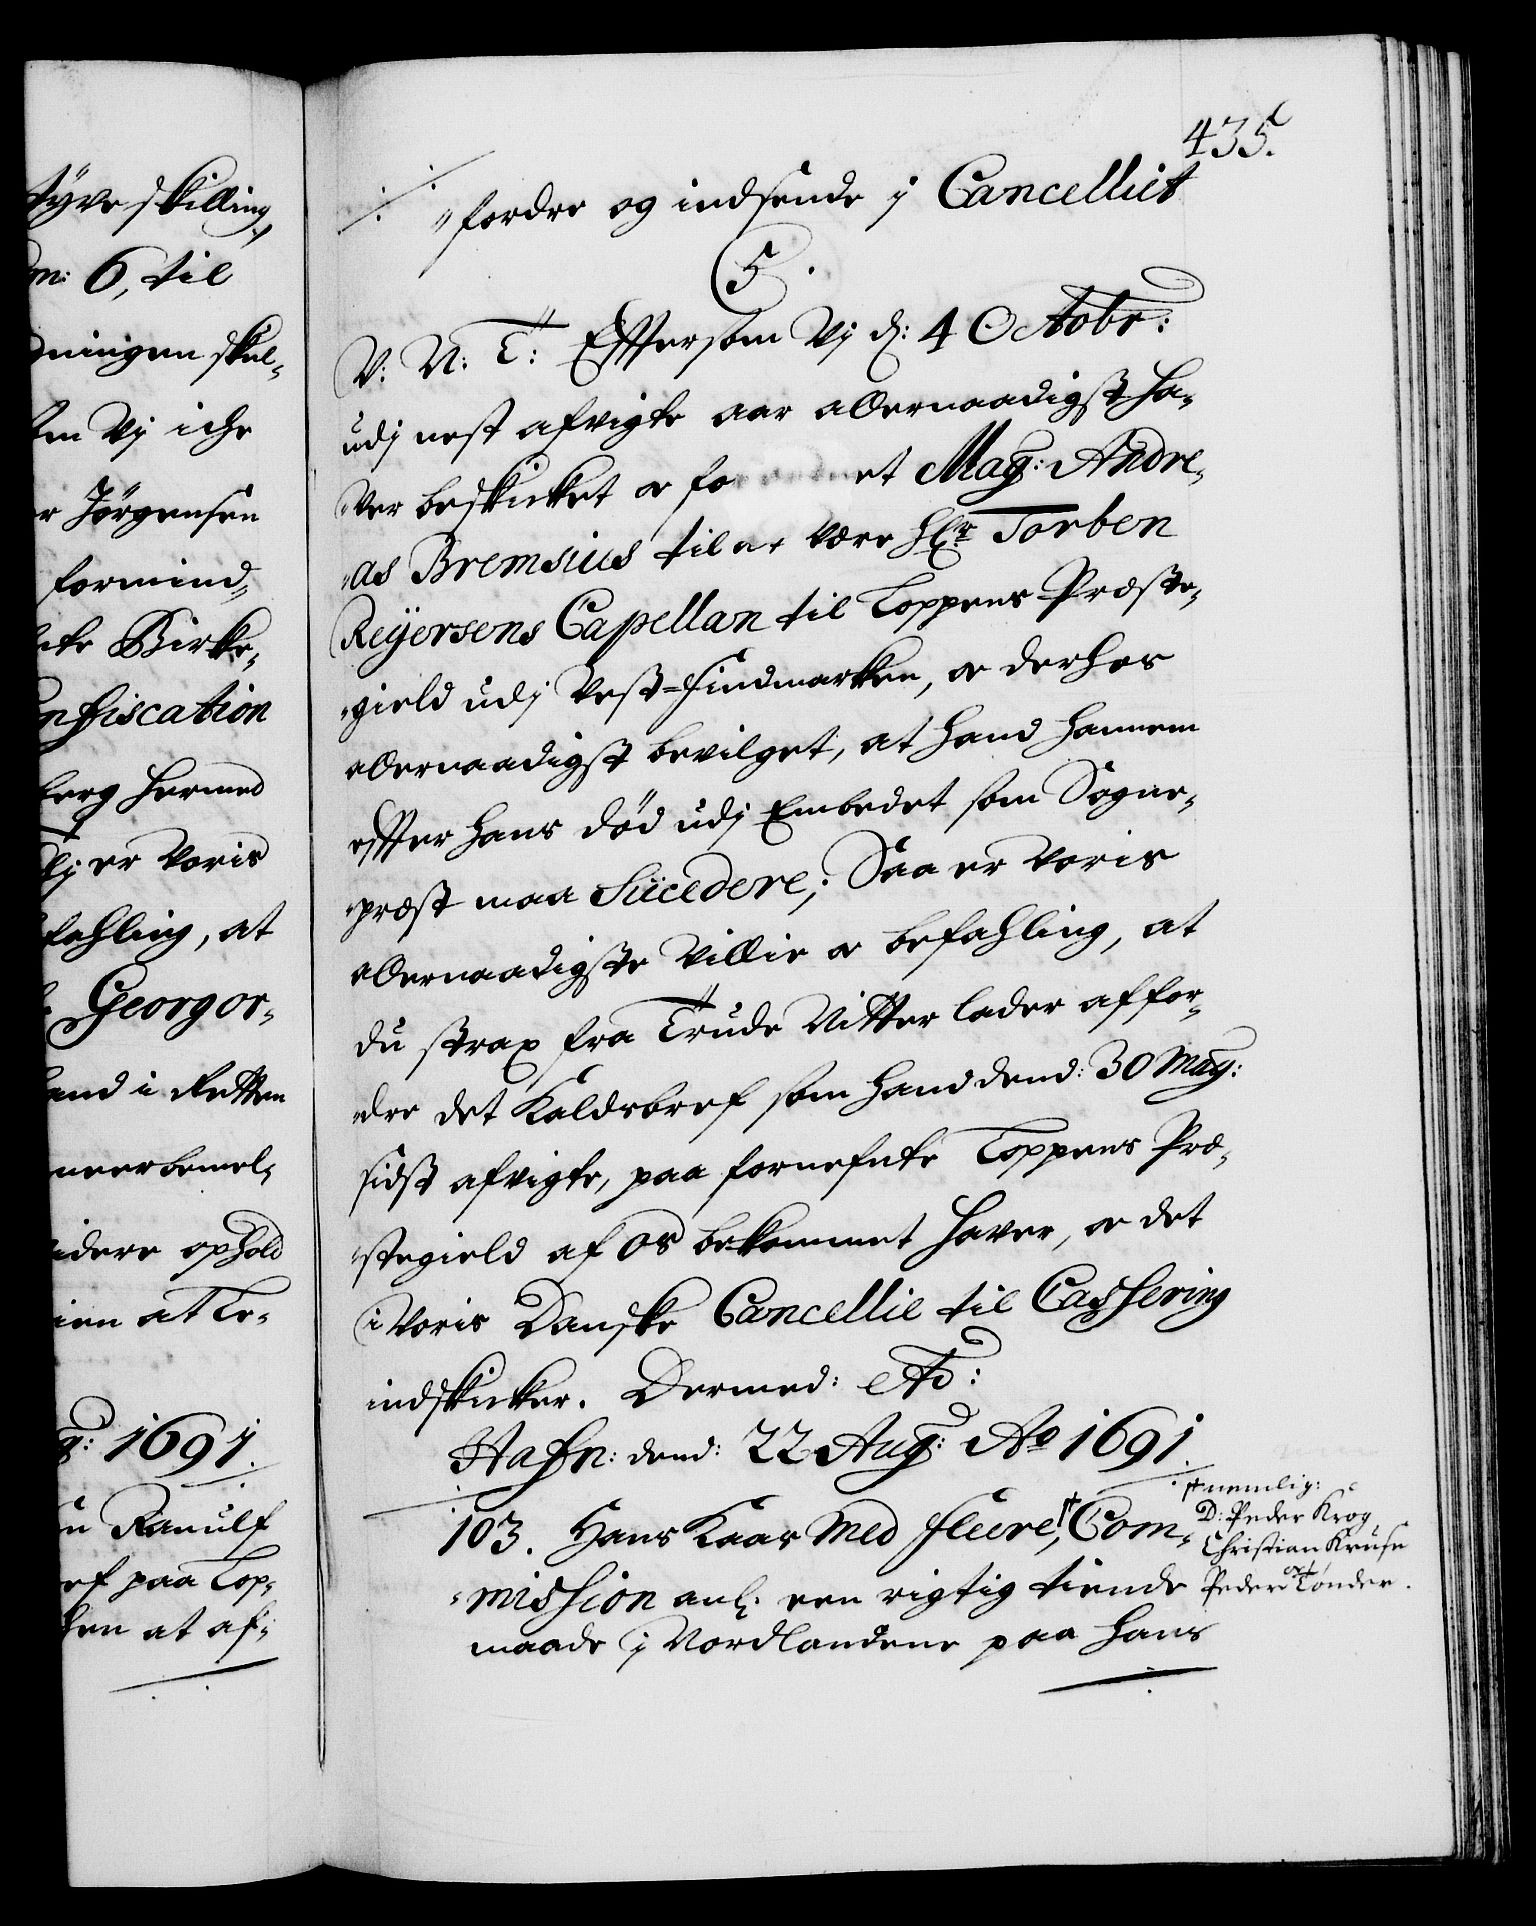 tÿve skilling,
m: 6, til
dningen skul-
en Vj iche
r Jörgensen
formind-
te Birke-
nfiscation
berg hermed
lj er Voris
fahling, at
Georg or-
and i Retten
neerbemel-
idere ophold
ien at le-
g: 1691.
n Ranulf
ef paa Lop-
hen at af-
435.
fordre og indsende j Cancelliet
5.
V. N: T: Effter som Vj d: 4 Octobr:
udj nest afvigte aar allernaadigst ha-
ver beskicket oc forordnet Mag: Andre-
as Bremsius til at være Hr Torben
Reÿersens Capellan til Loppens Præste-
gield udj Vest-Findmarken, oc derhos
allernaadigst bevilget, at hand hannem
effter hans död udj Embedet som Sogne-
præst maa succedere; Saa er Voris
allernaadigste Villie oc befahling, at
du strax fra Trude Nitter lader affor-
dre det Kaldsbref som hand dend: 30 Maÿ:
sidst afvigte, paa fornefnte Loppens Præ-
stegield af os bekommet haver, oc det
i Voris Danske Cancellie til Cassering
indskicker. Dermed: etc:
Hafn: dend: 22 Aug: Ao 1691.
103. Hans Kaas med fleere,† Com-
mission anl: een rigtig tiende
maade j Nordlandene paa hans
† nemlig:
D: Peder Krog,
Christian Kruse
oc
Peder Tönder.